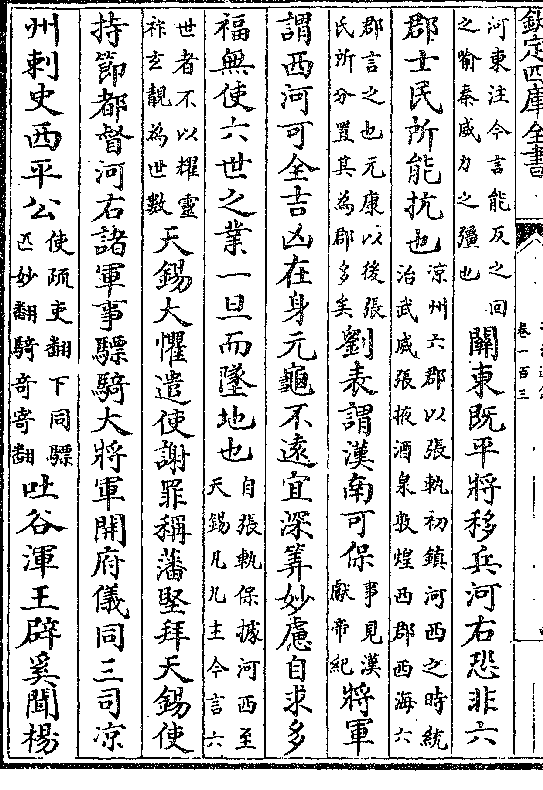 欽定四庫全書
卷一百三
河東注今言能反之回之喻秦威力之彊也關東既平將移兵河右恐非六
郡士民所能抗也涼州六郡以張軌初鎮河西之時統治武威張掖酒泉敦煌西郡西海六
郡言之也元康以後張氏所分置其為郡多矣劉表謂漢南可保事見漢獻帝紀將軍
謂西河可全吉凶在身元龜不遠宜深筭妙慮自求多
福無使六世之業一旦而墜地也自張軌保據河西至天錫凡九主今言六
世者不以耀靈祚玄靚為世數天錫大懼遣使謝罪稱藩堅拜天錫使
持節都督河右諸軍事驃騎大將軍開府儀同三司涼
州刺史西平公使疏吏翻下同驃匹妙翻騎奇寄翻吐谷渾王辟奚聞楊